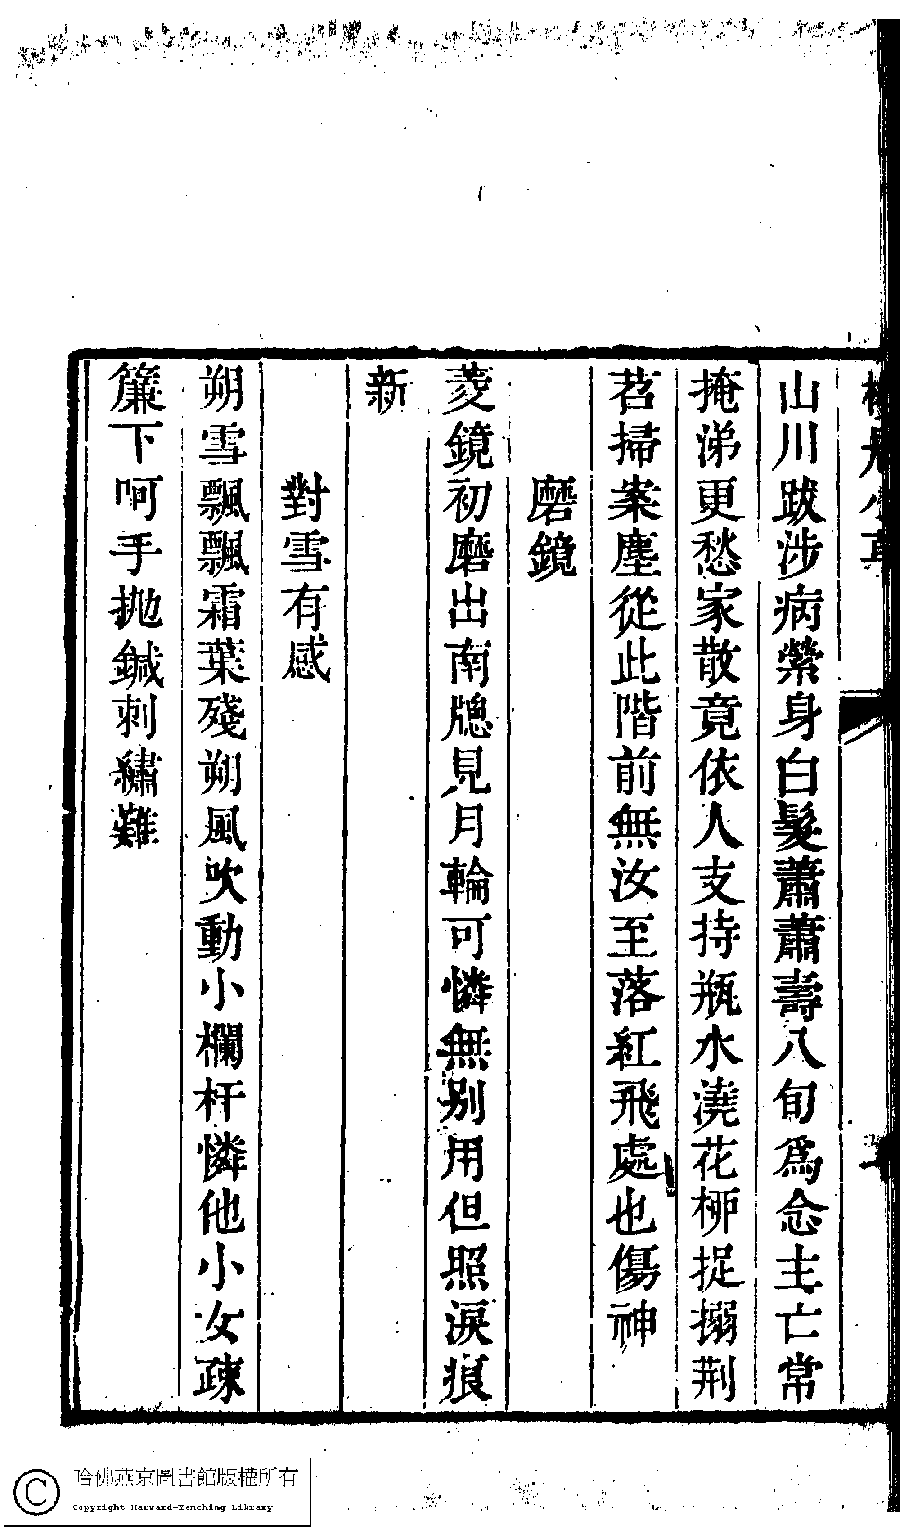 山川跋涉病縈身白髮蕭蕭壽八旬爲念主亡常
掩涕更愁家散竟依人支持瓶水澆花柳捉搦荆
苕掃案塵從此階前無汝至落紅飛處也傷神
磨鏡
菱鏡初磨出南牎見月輪可憐無别用但照淚痕
新
對雪有感
朔雪飄飄霜葉殘朔風吹動小欄杆憐他小女疎
簾下呵手抛鍼刺繡難
哈佛燕京圖書館版權所有
Copyright Harvard-Yenching Library